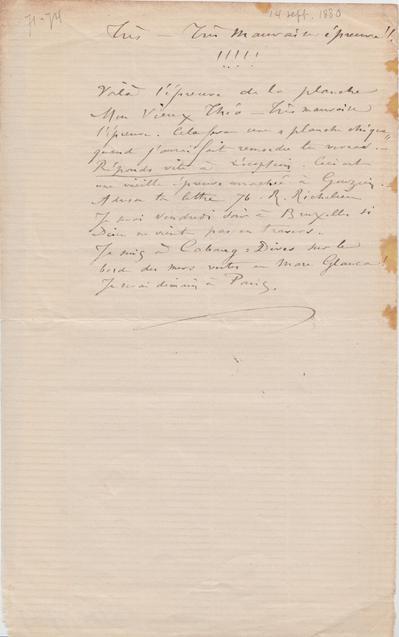 71-74
14 sept. 1880
Très — Très Mauvaise épreuve!!
!!!!!
Voilà l'épreuve de la planche
Mon Vieux Théo – très mauvaise
l'épreuve. Cela fera une planche chique,
quand j'aurai fait remordre le vernis.
Réponds vite à réception. Ceci est
une vieille épreuve arrachée à
ta lettre 76. R. Richelieu
Je serai vendredi soir à Bruxelles si
Dieu ne vient pas en travers.
Je suis à Cabourg-Dives sur le
bord des mers vertes en Mare Glauca!
Je serai demain à Paris.